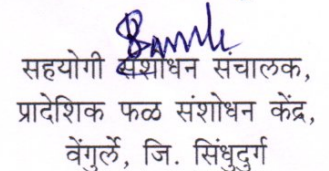 सहयोगी संशोधन संचालक,
प्रादेशिक फळ संशोधन केंद्र,
वेंगुर्ले, जि. सिंधुदुर्ग